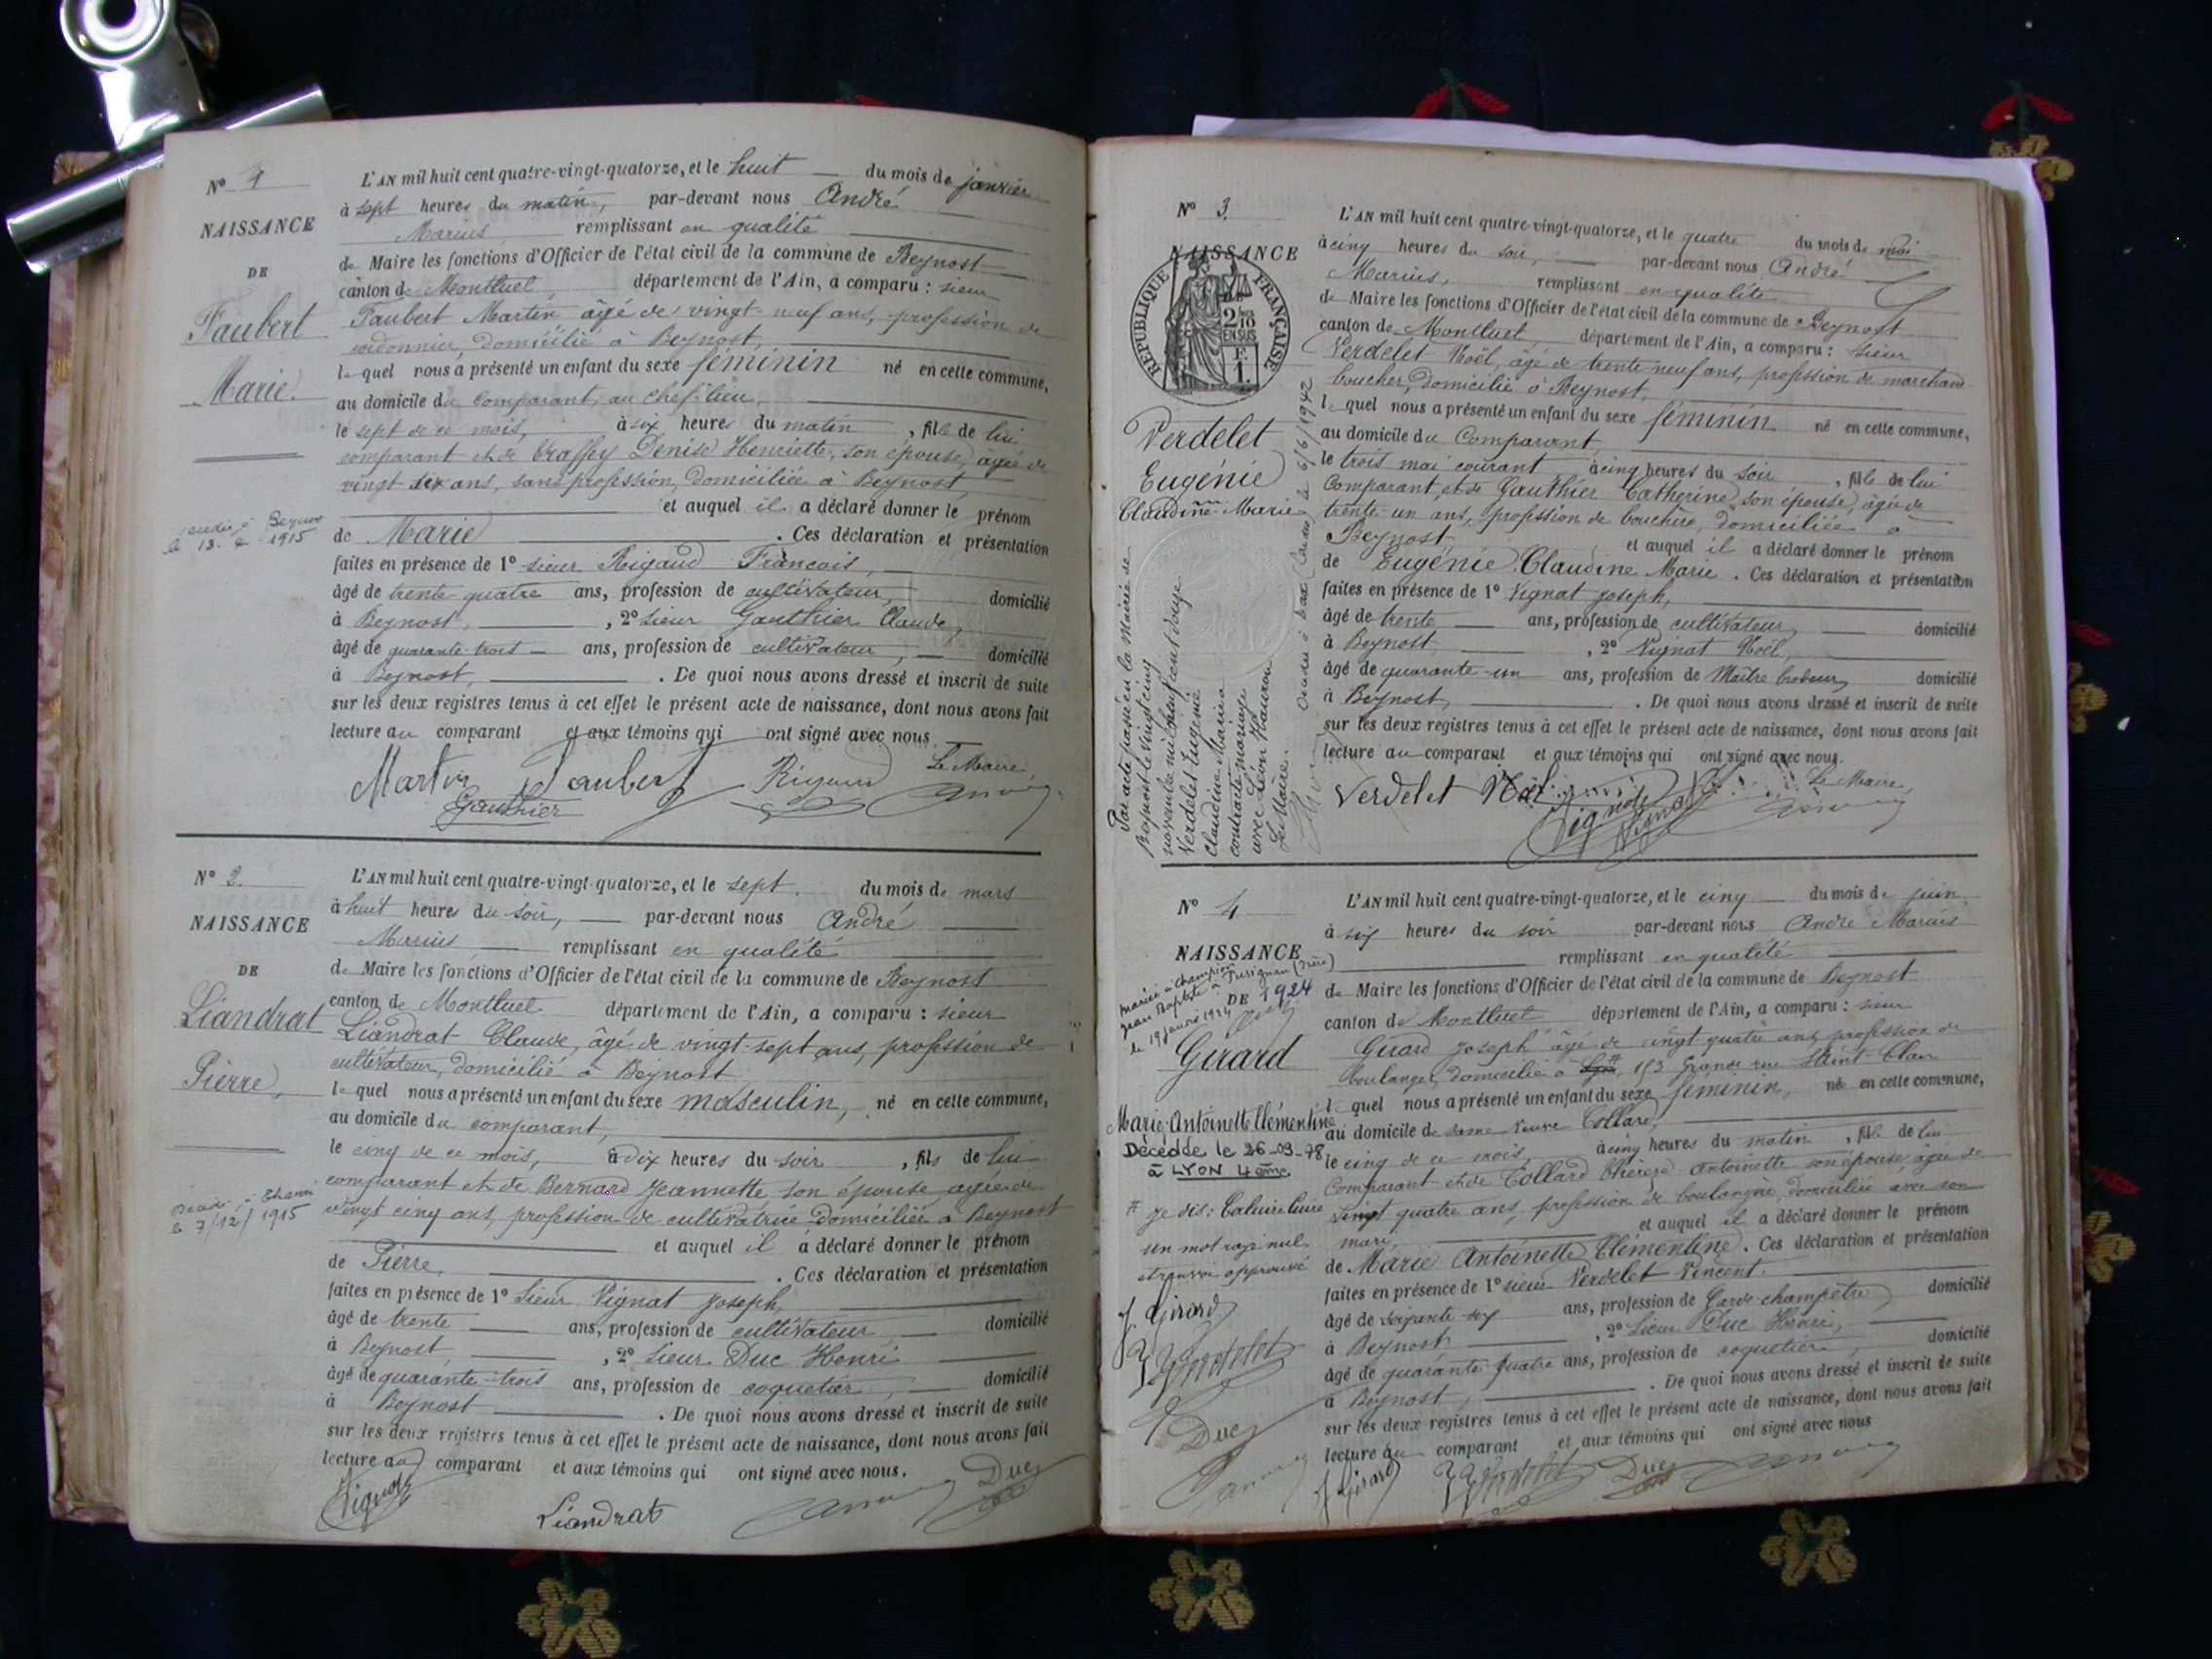 N° 1
NAISSANCE
DE
Faubert
Marie.
L'AN mil huit cent quatre-vingt-quatorze, et le huit du mois de janvier
à sept heures du matin, par-devant nous André
Marius remplissant en qualité
de Maire les fonctions d'Officier de l'état civil de la commune de Beynost
canton de Montluel département de l'Ain, a comparu : sieur
Faubert Martin âgé de vingt-neuf ans, profession de
cordonnier, domicilié à Beynost,
lequel nous a présenté un enfant du sexe féminin né en cette commune,
au domicile du Comparant, au chef-lieu,
le sept de ce mois, à six heures du matin, fille de lui
comparant et de Denise Henriette, son épouse, âgée de
vingt six ans, sans profession, domiciliée à Beynost,
et auquel il a déclaré donner le prénom
de Marie. Ces déclaration et présentation
faites en présence de 1° sieur Rigaud François,
âgé de trente-quatre ans, profession de cultivateur, domicilié
à Beynost, 2° sieur Gauthier Claude,
âgé de quarante-trois ans, profession de cultivateur, domicilié
à Beynost, . De quoi nous avons dressé et inscrit de suite
sur les deux registres tenus à cet effet le présent acte de naissance, dont nous avons fait
lecture au comparant et aux témoins qui ont signé avec nous
Le Maire,
Martin Faubert Rigaud
Gauthier
à Beynost
le 13. 2. 1915
N° 2.
NAISSANCE
DE
Liandrat
Pierre,
L'AN mil huit cent quatre-vingt-quatorze, et le sept du mois de mars
à huit heures du soir, par-devant nous André
Marius remplissant en qualité
de Maire les fonctions d'Officier de l'état civil de la commune de Beynost
canton de Montluel département de l'Ain, a comparu : sieur
Liandrat Claude, âgé de vingt-sept ans, profession de
cultivateur, domicilié à Beynost
lequel nous a présenté un enfant du sexe masculin, né en cette commune,
au domicile du comparant,
le cinq de ce mois, à dix heures du soir, fils de lui
comparant et de Bernard Jeannette, son épouse âgée de
vingt cinq ans, profession de cultivatrice domiciliée à Beynost
et auquel il a déclaré donner le prénom
de Pierre, . Ces déclaration et présentation
faites en présence de 1° Sieur Vignat Joseph,
âgé de trente ans, profession de cultivateur, domicilié
à Beynost, 2° Sieur Duc Henri
âgé de quarante-trois ans, profession de coquetier, domicilié
à Beynost . De quoi nous avons dressé et inscrit de suite
sur les deux registres tenus à cet effet le présent acte de naissance, dont nous avons fait
lecture au comparant et aux témoins qui ont signé avec nous.
Vignat Liandrat Duc
le 7/12/1915
N° 3.
NAISSANCE
REPUBLIQUE FRANÇAISE
2/10 EN SUS
F. 1.
Verdelet
Eugénie
Claudine Marie
L'AN mil huit cent quatre-vingt-quatorze, et le quatre du mois de mai
à cinq heures du soir, par-devant nous André
Marius, remplissant en qualité
de Maire les fonctions d'Officier de l'état civil de la commune de Beynost
canton de Montluel, département de l'Ain, a comparu : Sieur
Verdelet Noël, âgé de trente-neuf ans, profession de marchand
boucher, domicilié à Beynost,
lequel nous a présenté un enfant du sexe féminin né en cette commune,
au domicile du Comparant,
le trois mai courant à cinq heures du soir, fille de lui
Comparant, et de Gauthier Catherine, son épouse, âgée de
trente-un ans, profession de bouchère, domiciliée à
Beynost et auquel il a déclaré donner le prénom
de Eugénie Claudine Marie. Ces déclaration et présentation
faites en présence de 1° Vignat Joseph,
âgé de trente ans, profession de cultivateur, domicilié
à Beynost, 2° Vignat Noël,
âgé de quarante-un ans, profession de Maître domicilié
à Beynost, . De quoi nous avons dressé et inscrit de suite
sur les deux registres tenus à cet effet le présent acte de naissance, dont nous avons fait
lecture au comparant et aux témoins qui ont signé avec nous.
Le Maire,
Verdelet Noël Vignat Vignat
Par acte passé en la Mairie de
Beynost le vingt cinq
mil neuf cent douze
Verdelet Eugénie
Claudine Marie
contracté mariage
avec Léon
Le Maire.
le 6/6/1942
N° 4
NAISSANCE
DE
Girard
Marie-Antoinette Clémentine
Décédée le 26-09-78
à LYON 4ème
mariée à champion
Jean Baptiste à
le 19 janvier 1924
1924
# je dis: Caluire Cuire
un mot rayé nul
et renvoi approuvé
J. Girard
Verdelet
Duc
L'AN mil huit cent quatre-vingt-quatorze, et le cinq du mois de juin,
à six heures du soir par-devant nous André Marius
remplissant en qualité
de Maire les fonctions d'Officier de l'état civil de la commune de Beynost
canton de Montluel département de l'Ain, a comparu : sieur
Girard Joseph âgé de vingt quatre ans, profession de
boulanger, domicilié à Lyon #, 153 Grande rue Saint Clair
lequel nous a présenté un enfant du sexe féminin, né en cette commune,
au domicile de dame veuve Collard,
le cinq de ce mois, à cinq heures du matin, fille de lui
Comparant et de Collard Antoinette son épouse, âgée de
vingt quatre ans, profession de boulangère, domiciliée avec son
mari, et auquel il a déclaré donner le prénom
de Marie Antoinette Clémentine. Ces déclaration et présentation
faites en présence de 1° sieur Verdelet Vincent.
âgé de soixante-six ans, profession de Garde-champêtre domicilié
à Beynost, 2° Sieur Duc Henri,
âgé de quarante-quatre ans, profession de coquetier, domicilié
à Beynost, . De quoi nous avons dressé et inscrit de suite
sur les deux registres tenus à cet effet le présent acte de naissance, dont nous avons fait
lecture au comparant et aux témoins qui ont signé avec nous
J. Girard Verdelet Duc